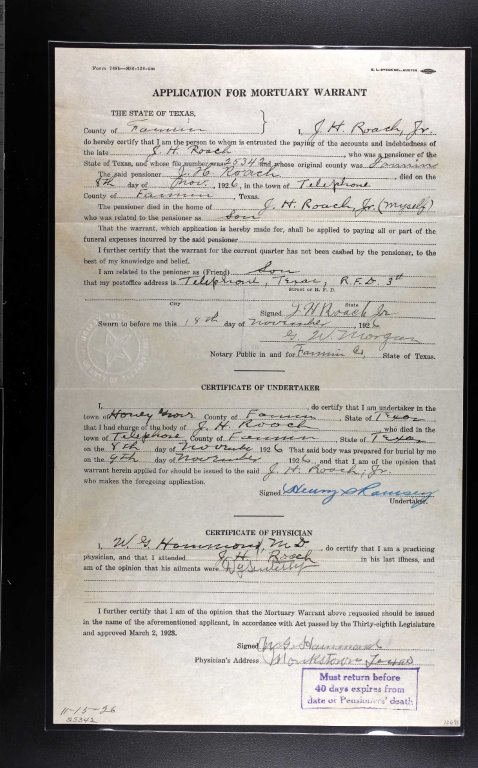 APPLICATION FOR MORTUARY WARRANT
THE STATE OF TEXAS,
County of Fannin I, J. H. Roach, Jr.
do hereby certify that I am the person to whom is entrusted the paying of the accounts and indebtedness of
the late J. H. Roach, who was a pensioner of the
State of Texas, and whose file number was 25342 and whose original county was Fannin
The said pensioner J. H. Roach, died on the
8th day of Nov. 1926, in the town of Telephone
County of Fannin
The pensioner died in the home of J. H. Roach, Jr. (myself)
who was related to the pensioner as Son
That the warrant, which application is hereby made for, shall be applied to paying all or part of the
funeral expenses incurred by the said pensioner
I further certify that the warrant for the current quarter has not been cashed by the pensioner, to the
best of my knowledge and belief.
I am related to the penioner as (Friend) Son
that my postoffice address is Telephone, Texas, R.F.D. 3rd
Street or R. F. D.
City State
Signed J. H. Roach Jr.
Sworn to before me this 18th day of November 1926
G. W. Morgan
Notary Public in and for Fannin Co, State of Texas.
CERTIFICATE OF UNDERTAKER
I, do certify that I am undertaker in the
town of Honey Grove County of Fannin, State of Texas
that I had charge of the body of J. H. Roach, who died in the
town of Telephone County of Fannin, State of Texas
on the 8th day of November 1926 That said body was prepared for burial by me
on the 9th day of November 1926, and that I am of the opinion that
warrant herein applied for should be issued to the said J. H. Roach, Jr.
who makes the foregoing application.
Signed Henry Ramsey
Undertaker.
CERTIFICATE OF PHYSICIAN
I, W. G. Hammond, M D, do certify that I am a practicing
physician, and that I attended J. H. Roach in his last illness, and
am of the opinion that his ailments were Dysentery
I further certify that I am of the opinion that the Mortuary Warrant above requested should be issued
in the name of the aforementioned applicant, in accordance with Act passed by the Thirty-eighth Legislature
and approved March 2, 1923.
Signed W. G. Hammond
Physician's Address Monkstown Texas
Must return before
40 days expires from
date of Pensioners' death
11-15-26
25342